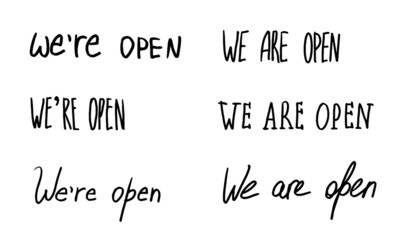 we're OPEN
WE ARE OPEN
WE'RE OPEN
WE ARE OPEN
We're open
We are open